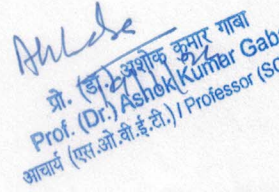 प्रो. (डा.) अशोक कुमार गाबा
Prof. (Dr.) Ashok Kumar Gab
आचार्य (एस.ओ.वी.ई.टी.) / Professor (SO